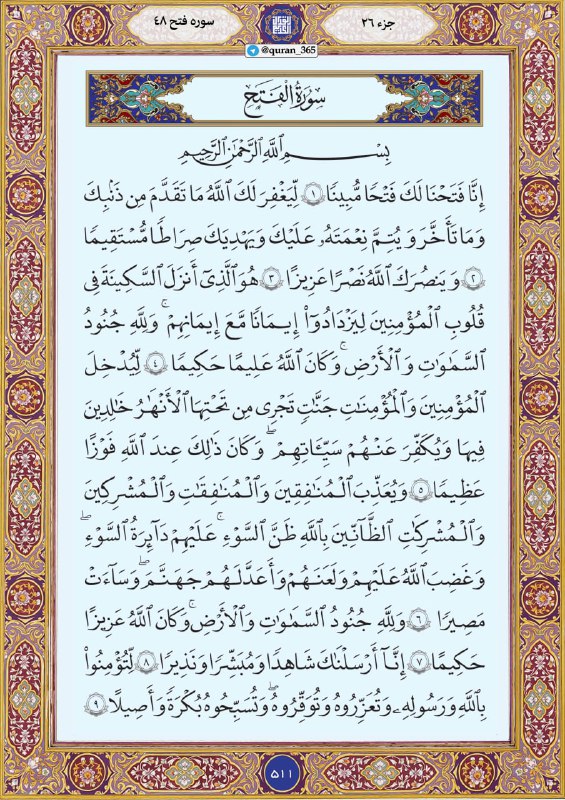 جزء ۲۶
سوره فتح ۴۸
@quran_365
سُورَةُ الْفَتْحِ
بِسْمِ ٱللَّهِ ٱلرَّحْمَٰنِ ٱلرَّحِيمِ
إِنَّا فَتَحْنَا لَكَ فَتْحًا مُّبِينًا ۝١ لِّيَغْفِرَ لَكَ ٱللَّهُ مَا تَقَدَّمَ مِن ذَنۢبِكَ
وَمَا تَأَخَّرَ وَيُتِمَّ نِعْمَتَهُۥ عَلَيْكَ وَيَهْدِيَكَ صِرَٰطًا مُّسْتَقِيمًا
۝٢ وَيَنصُرَكَ ٱللَّهُ نَصْرًا عَزِيزًا ۝٣ هُوَ ٱلَّذِىٓ أَنزَلَ ٱلسَّكِينَةَ فِى
قُلُوبِ ٱلْمُؤْمِنِينَ لِيَزْدَادُوٓا۟ إِيمَٰنًا مَّعَ إِيمَٰنِهِمْ ۗ وَلِلَّهِ جُنُودُ
ٱلسَّمَٰوَٰتِ وَٱلْأَرْضِ ۚ وَكَانَ ٱللَّهُ عَلِيمًا حَكِيمًا ۝٤ لِّيُدْخِلَ
ٱلْمُؤْمِنِينَ وَٱلْمُؤْمِنَٰتِ جَنَّٰتٍ تَجْرِى مِن تَحْتِهَا ٱلْأَنْهَٰرُ خَٰلِدِينَ
فِيهَا وَيُكَفِّرَ عَنْهُمْ سَيِّـَٔاتِهِمْ ۚ وَكَانَ ذَٰلِكَ عِندَ ٱللَّهِ فَوْزًا
عَظِيمًا ۝٥ وَيُعَذِّبَ ٱلْمُنَٰفِقِينَ وَٱلْمُنَٰفِقَٰتِ وَٱلْمُشْرِكِينَ
وَٱلْمُشْرِكَٰتِ ٱلظَّآنِّينَ بِٱللَّهِ ظَنَّ ٱلسَّوْءِ ۚ عَلَيْهِمْ دَآئِرَةُ ٱلسَّوْءِ ۖ
وَغَضِبَ ٱللَّهُ عَلَيْهِمْ وَلَعَنَهُمْ وَأَعَدَّ لَهُمْ جَهَنَّمَ ۖ وَسَآءَتْ
مَصِيرًا ۝٦ وَلِلَّهِ جُنُودُ ٱلسَّمَٰوَٰتِ وَٱلْأَرْضِ ۚ وَكَانَ ٱللَّهُ عَزِيزًا
حَكِيمًا ۝٧ إِنَّآ أَرْسَلْنَٰكَ شَٰهِدًا وَمُبَشِّرًا وَنَذِيرًا ۝٨ لِّتُؤْمِنُوا۟
بِٱللَّهِ وَرَسُولِهِۦ وَتُعَزِّرُوهُ وَتُوَقِّرُوهُ ۖ وَتُسَبِّحُوهُ بُكْرَةً وَأَصِيلًا ۝٩
۵۱۱